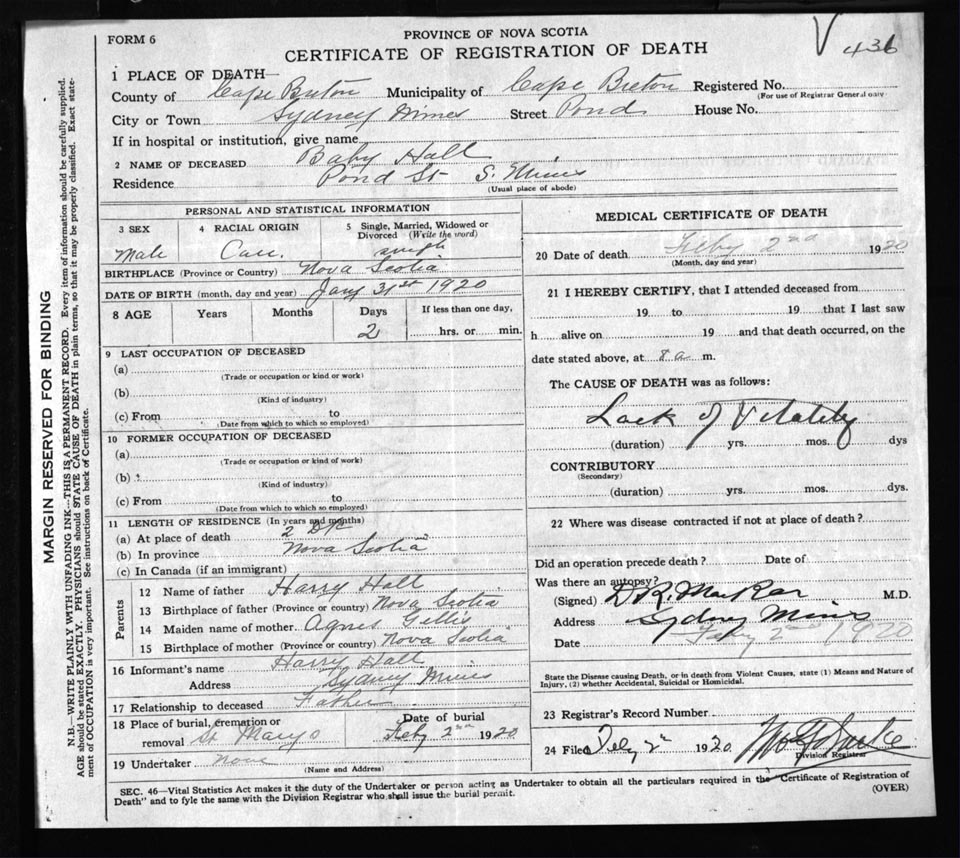 FORM 6
PROVINCE OF NOVA SCOTIA
CERTIFICATE OF REGISTRATION OF DEATH
436
1 PLACE OF DEATH—
County of Cape Breton Municipality of Cape Breton Registered No.
(For use of Registrar General only
City or Town Sydney Mines Street Pond House No.
If in hospital or institution, give name
2 NAME OF DECEASED Baby Hall
Residence Pond St S. Mines
(Usual place of abode)
PERSONAL AND STATISTICAL INFORMATION
3 SEX 4 RACIAL ORIGIN 5 Single, Married, Widowed or Divorced (Write the word)
Male Cau. single
BIRTHPLACE (Province or Country) Nova Scotia
DATE OF BIRTH (month, day and year) Jany 31st 1920
8 AGE Years Months Days If less than one day,
2 hrs. or min.
9 LAST OCCUPATION OF DECEASED
(a)
(Trade or occupation or kind or work)
(b)
(Kind of industry)
(c) From to
(Date from which to which so employed)
10 FORMER OCCUPATION OF DECEASED
(a)
(Trade or occupation or kind of work)
(b)
(Kind of industry)
(c) From to
(Date from which to which so employed)
11 LENGTH OF RESIDENCE (In years and months)
(a) At place of death 2
(b) In province Nova Scotia
(c) In Canada (if an immigrant)
Parents
12 Name of father Harry Hall
13 Birthplace of father (Province or country) Nova Scotia
14 Maiden name of mother Agnes Gillis
15 Birthplace of mother (Province or country) Nova Scotia
16 Informant's name Harry Hall
Address Sydney Mines
17 Relationship to deceased Father
18 Place of burial, cremation or removal St Marys Date of burial Feby 2nd 1920
19 Undertaker None
(Name and Address)
MEDICAL CERTIFICATE OF DEATH
20 Date of death Feby 2nd 1920
(Month, day and year)
21 I HEREBY CERTIFY, that I attended deceased from
19 to 19 that I last saw
h alive on 19 and that death occurred, on the
date stated above, at 8 a m.
The CAUSE OF DEATH was as follows:
Lack of Vitality
(duration) yrs. mos. dys
CONTRIBUTORY
(Secondary)
(duration) yrs. mos. dys.
22 Where was disease contracted if not at place of death?
Did an operation precede death? Date of
Was there an autopsy?
(Signed) M.D.
Address Sydney Mines
Date Feby 2nd 1920
State the Disease causing Death, or in death from Violent Causes, state (1) Means and Nature of
Injury, (2) whether Accidental, Suicidal or Homicidal.
23 Registrar's Record Number
24 Filed Feby 2nd 1920
Division Registrar
SEC. 46—Vital Statistics Act makes it the duty of the Undertaker or person acting as Undertaker to obtain all the particulars required in the "Certificate of Registration of
Death" and to fyle the same with the Division Registrar who shall issue the burial permit.
(OVER)
MARGIN RESERVED FOR BINDING
N.B.—WRITE PLAINLY WITH UNFADING INK—THIS IS A PERMANENT RECORD. Every item of information should be carefully supplied.
AGE should be stated EXACTLY. PHYSICIANS should STATE CAUSE OF DEATH in plain terms, so that it may be properly classified. Exact state-
ment of OCCUPATION is very important. See instructions on back of Certificate.